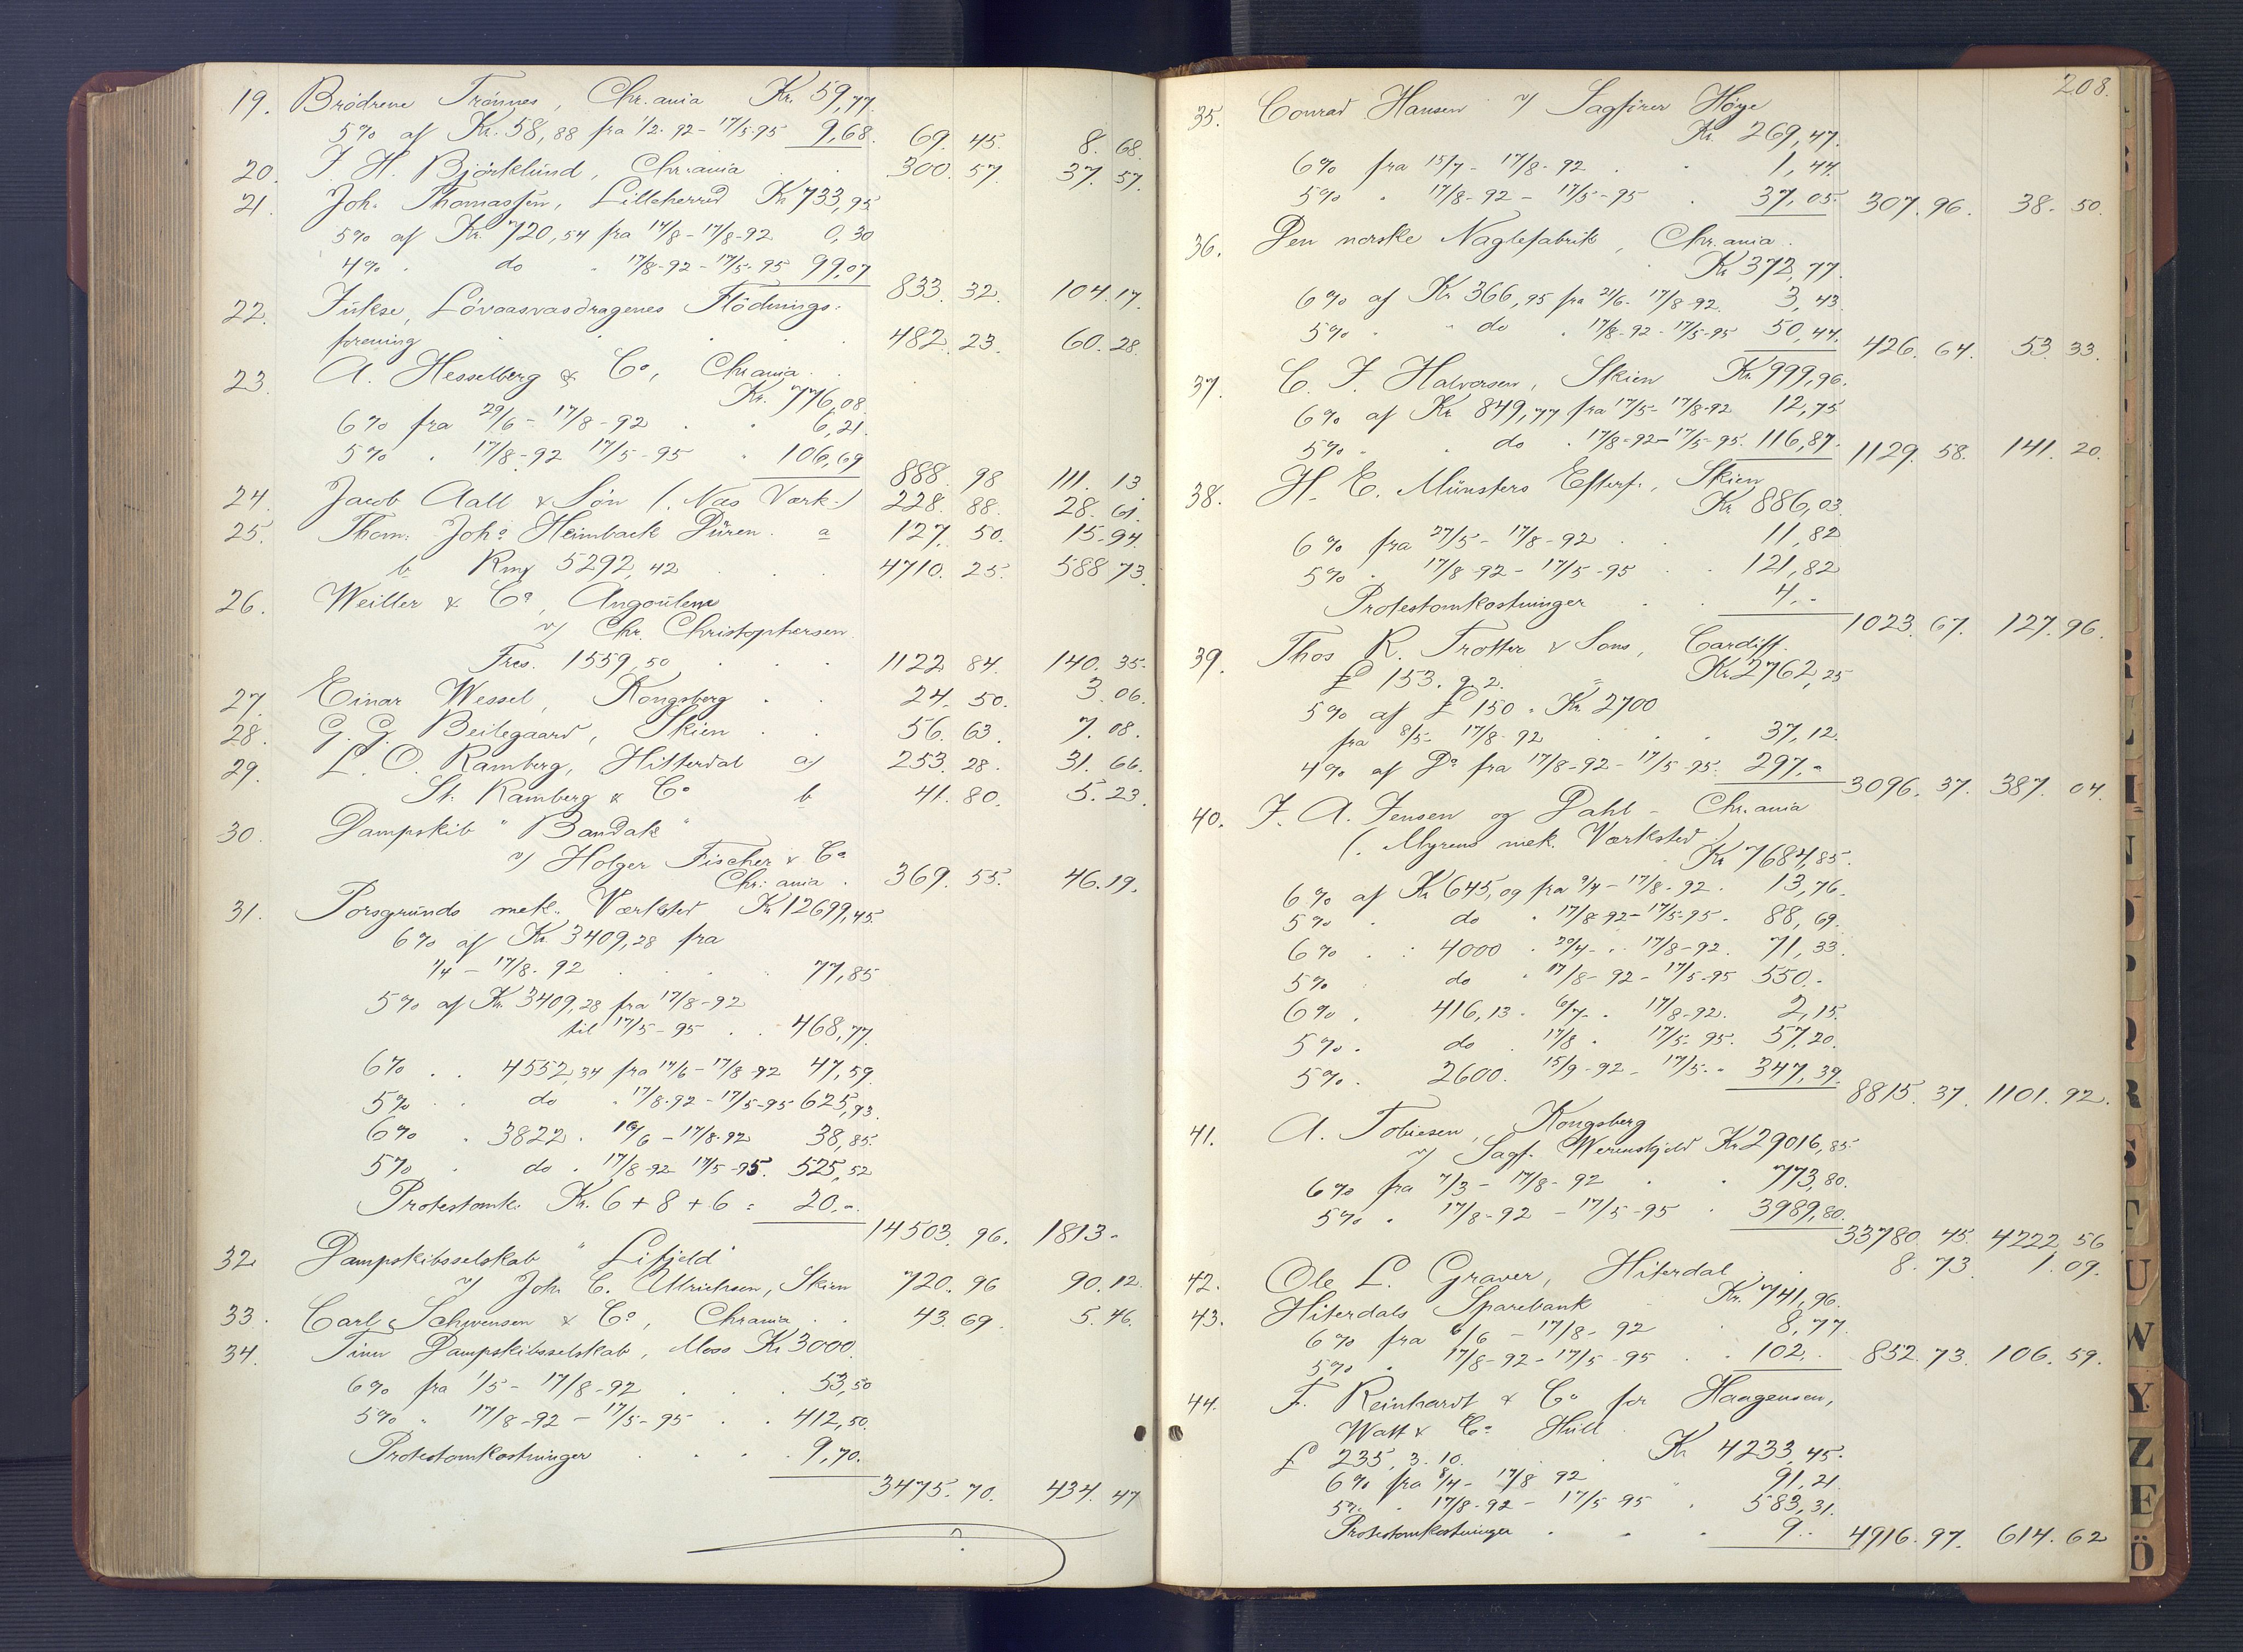 19. Brødrene Trønnes, Chr.ania Kr. 59,77.
5% af Kr. 58,88 fra 1/2-92 - 17/5-95 9,68. 69. 45. 8. 68.
20. J. H. Bjørklund, Chr.ania 300. 57. 37. 57.
21. Joh. Thomassen, Lilleherred Kr 733,95
5% af Kr. 720,54 fra 14/8 - 17/8-92 0,30
4% . do . 17/8-92 - 17/5-95 99,07 833. 32. 104. 17.
22. Jukse, Lövaasvasdragenes Flödnings-
forening 482. 23. 60. 28.
23. A. Hesselberg & Co, Chr.ania.
Kr. 776,08
6% fra 29/6 - 17/8-92 6,21.
5% . 17/8-92 17/5-95 106,69 888. 98 111. 13
24. Jacob Aall & Søn (. Næs Værk .) 228. 88. 28. 61.
25. Thom: Joh: Heimback Düren. a 127. 50. 15. 94.
b Rmk 5292,42 4710. 25. 588. 73.
26. Weiller & Co, Angoulem
v/ Chr. Christophersen.
Frcs. 1559,50 1122. 84. 140. 35.
27. Einar Wessel, Kongsberg 24. 50. 3. 06.
28. G. G. Beitegaard, Skien 56. 63. 7. 08.
29. L. O. Ramberg, Hitterdal a) 253. 28. 31. 66.
St. Ramberg & Co b 41. 80. 5. 23.
30. Dampskib "Bandak"
v/ Holger Fischer & Co
Chr: ania. 369. 55. 46. 19.
31. Porsgrunds mek. Værksted Kr 12699,45
6% af Kr. 3409,28 fra
1/4 - 17/8-92 77,85
5% af Kr. 3409,28 fra 17/8-92
til 17/5-95 468,77.
6% . . 4552,34 fra 14/6 - 17/8-92 47,59.
5% . . do . 17/8-92 - 17/5-95 625,93.
6% . 3822. 16/6 - 17/8-92 38,85.
5% . do . 17/8-92 17/5-95. 525,52
Protestomk. Kr. 6 + 8 + 6 = 20,-. 14503. 96. 1813-
32. Dampskibsselskab "Lifjeld"
v/ Joh. C. Ulrichsen, Skien 720. 96 90. 12.
33. Carl Schwensen & Co, Chrania 43. 69. 5. 46.
34. Dampskibsselskab, Moss Kr 3000.
6% fra 1/5 - 17/8-92 53,50
5% . 17/8-92 - 17/5-95 412,50.
Protestomkostninger 9,70.
3475. 70. 434. 47
208.
35. Conrad Hansen v/ Sagfører Høye
Kr. 269,47.
6% fra 15/7 - 17/8-92 1,44.
5% . 17/8-92 - 17/5-95 37,05. 307. 96. 38. 50.
36. Den norske Naglefabrik, Chr.ania.
Kr 372,77.
6% af Kr 366,95 fra 21/6 - 17/8-92. 3,43.
5% . . do . 17/8-92 - 17/5-95 50,44. 426. 64. 53. 33.
37. C. F. Halvorsen, Skien Kr 999,96.
6% af Kr 849,77 fra 17/5 - 17/8-92 12,75
5% . do . 17/8-92 - 17/5-95. 116,87. 1129. 58. 141. 20.
38. H. E. Münsters Efterf., Skien
Kr 886,03.
6% fra 27/5 - 17/8-92 11,82
5% . 17/8-92 - 17/5-95 121,82
Protestomkostninger 4,- 1023. 67. 127. 96.
39. Thos R. Trotter & Sons, Cardiff.
£ 153. 9. 2. = Kr 2762,25
5% af £ 150 = Kr 2700
fra 8/5 - 17/8-92 37,12.
4% af Do fra 17/8-92 - 17/5-95. 297,- 3096. 37. 387. 04.
40. J. A. Jensen og Dahl - Chr.ania
(. Myrens mek. Værksted .)
Kr 7684,85.
6% af Kr 645,09 fra 9/4 - 17/8-92. 13,76.
5% . do . 17/8-92 - 17/5-95. 88,69.
6% . : 4000 . 29/4 - . 17/8-92. 71,33.
5% do . 17/8-92 - 17/5-95 550.-
6% . 416,13. 6/7 - . 17/8-92. 2,15.
5% . do . 17/8 . 17/5-95. 57,20.
5% . 2600. 15/9-92 - 17/5-" 347,39. 8815. 37. 1101. 92.
41. A. Tobiesen, Kongsberg
v/ Sagf. Werenskjold Kr 29016,85
6% fra 7/3 - 17/8-92 773,80.
5% . 17/8-92 - 17/5-95 3989,80. 33780. 45. 4222. 56
42. Ole L. Graver, Hiterdal 8. 73. 1. 09.
43. Hiterdals Sparebank Kr. 741,96.
6% fra 6/6 - 17/8-92 8,77.
5% . 17/8-92 - 17/5-95 102,- 852. 73. 106. 59.
44. F. Reinhardt & Co for Haagensen,
Watt & Co Hull.
£ 235. 3. 10. Kr 4233,45.
6% fra 8/4 - 17/8 92 91,21.
5% . 17/8-92 - 17/5 95 583,31.
Protestomkostninger 9.- 4916. 97. 614. 62
Q
R
S
T
U
W
Y.
Z
Æ
Ö